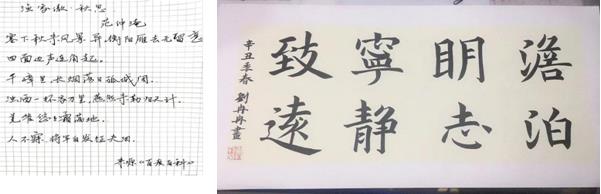 渔家傲·秋思
范仲淹
塞下秋来风景异,衡阳雁去无留意
四面边声连角起。
千嶂里,长烟落日孤城闭。
浊酒一杯家万里,燕然未勒归无计
羌管悠悠霜满地。
人不寐,将军白发征夫泪。
来源《百度百科》
澹泊
明志
寧静
致遠
辛丑季春 劉冉冉書